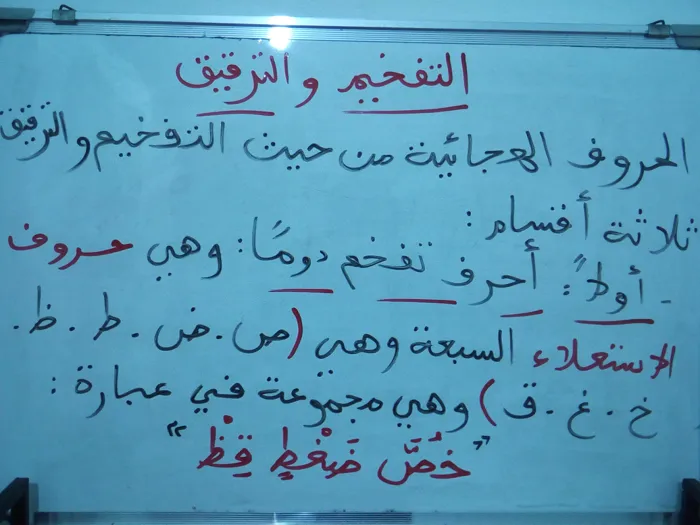 التفخيم والترقيق
الحروف الهجائية من حيث التفخيم والترقيق
ثلاثة أقسام :
- أولاً : أحرف تفخم دومًا : وهي حروف
الاستعلاء السبعة وهي (ص . ض . ط . ظ .
خ . غ . ق) وهي مجموعة في عبارة :
"خُصَّ ضَغْطٍ قِظْ"